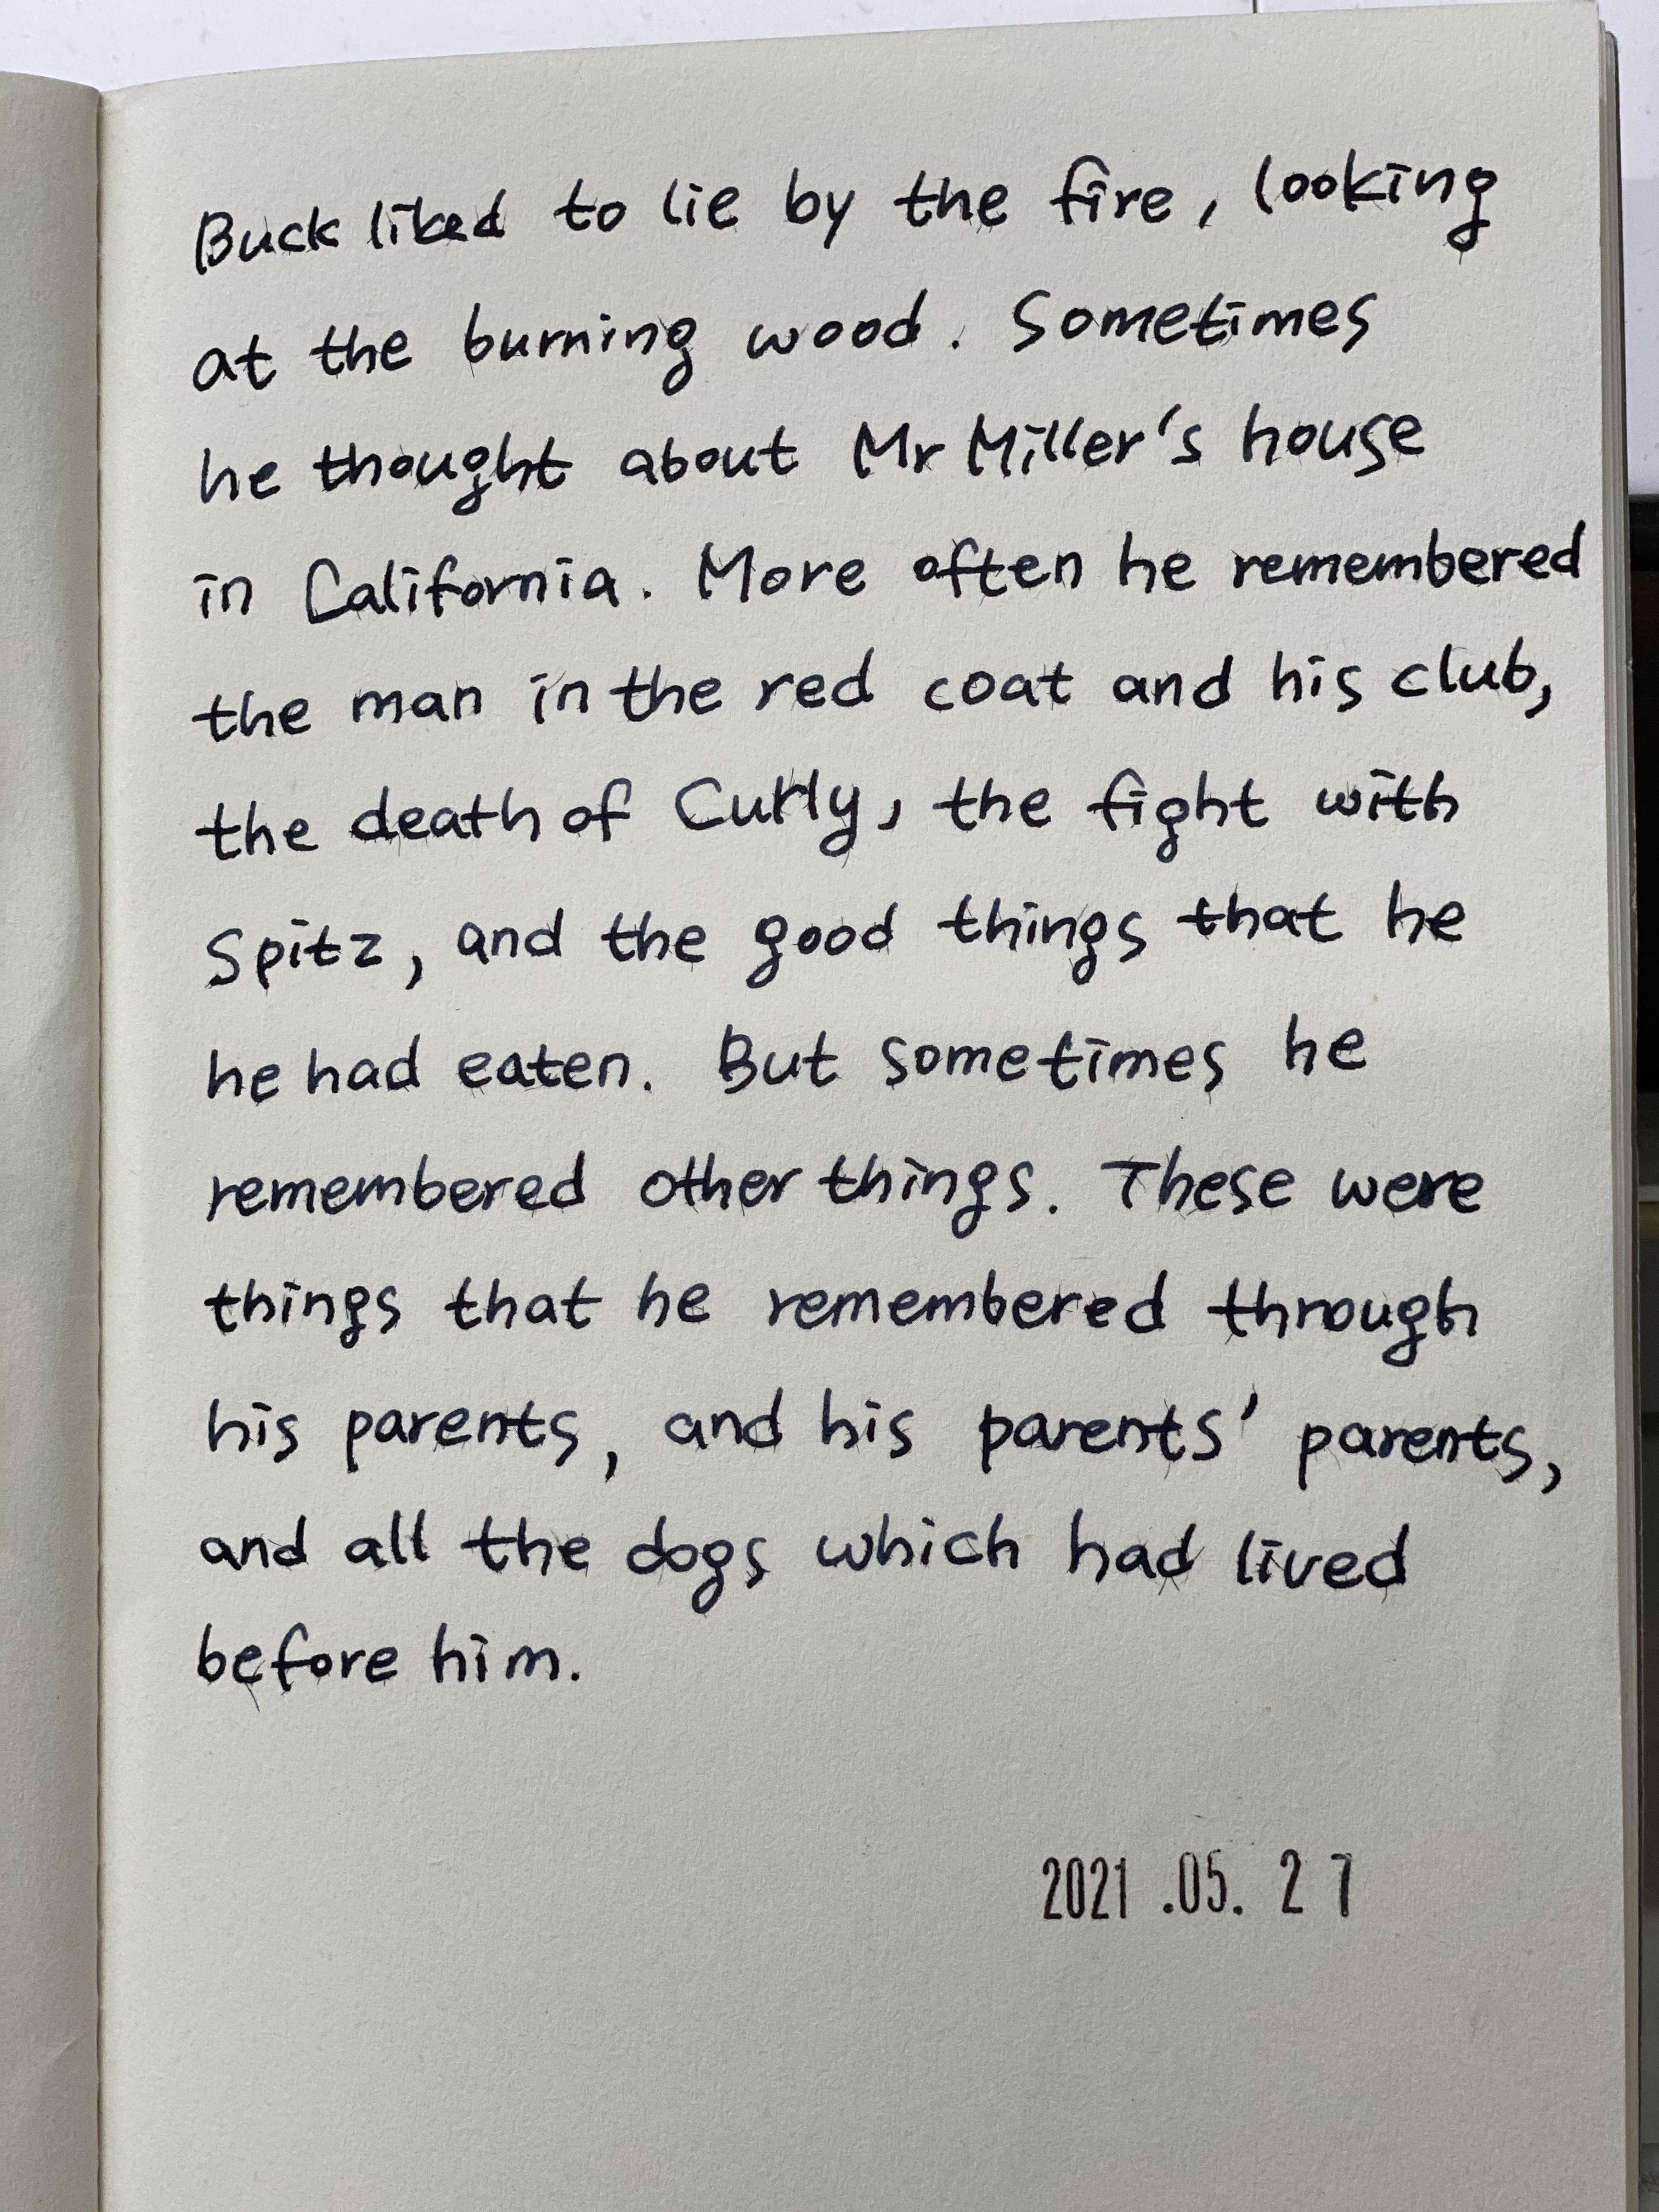 Buck liked to lie by the fire, looking
at the burning wood. Sometimes
he thought about Mr Miller's house
in California. More often he remembered
the man in the red coat and his club,
the death of Curly, the fight with
Spitz, and the good things that he
he had eaten. But sometimes he
remembered other things. These were
things that he remembered through
his parents, and his parents' parents,
and all the dogs which had lived
before him.
2021 .05. 27